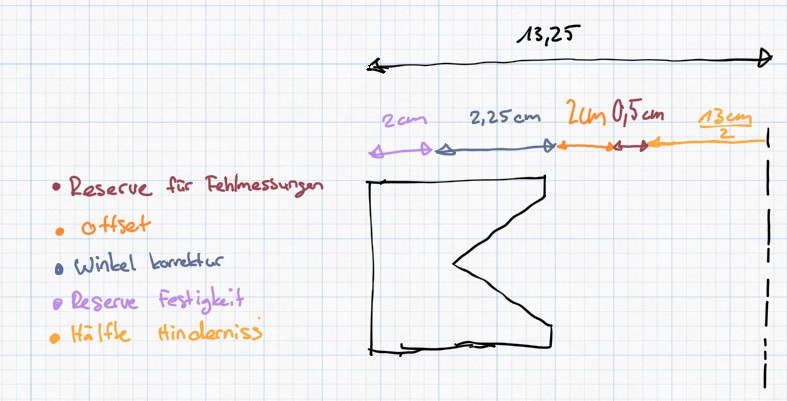 13,25
2cm 2,25cm 2cm 0,5cm 13cm
2
• Reserve für Fehlmessungen
• Offset
• Winkel korrektur
• Reserve Festigkeit
• Hälfte Hinderniss